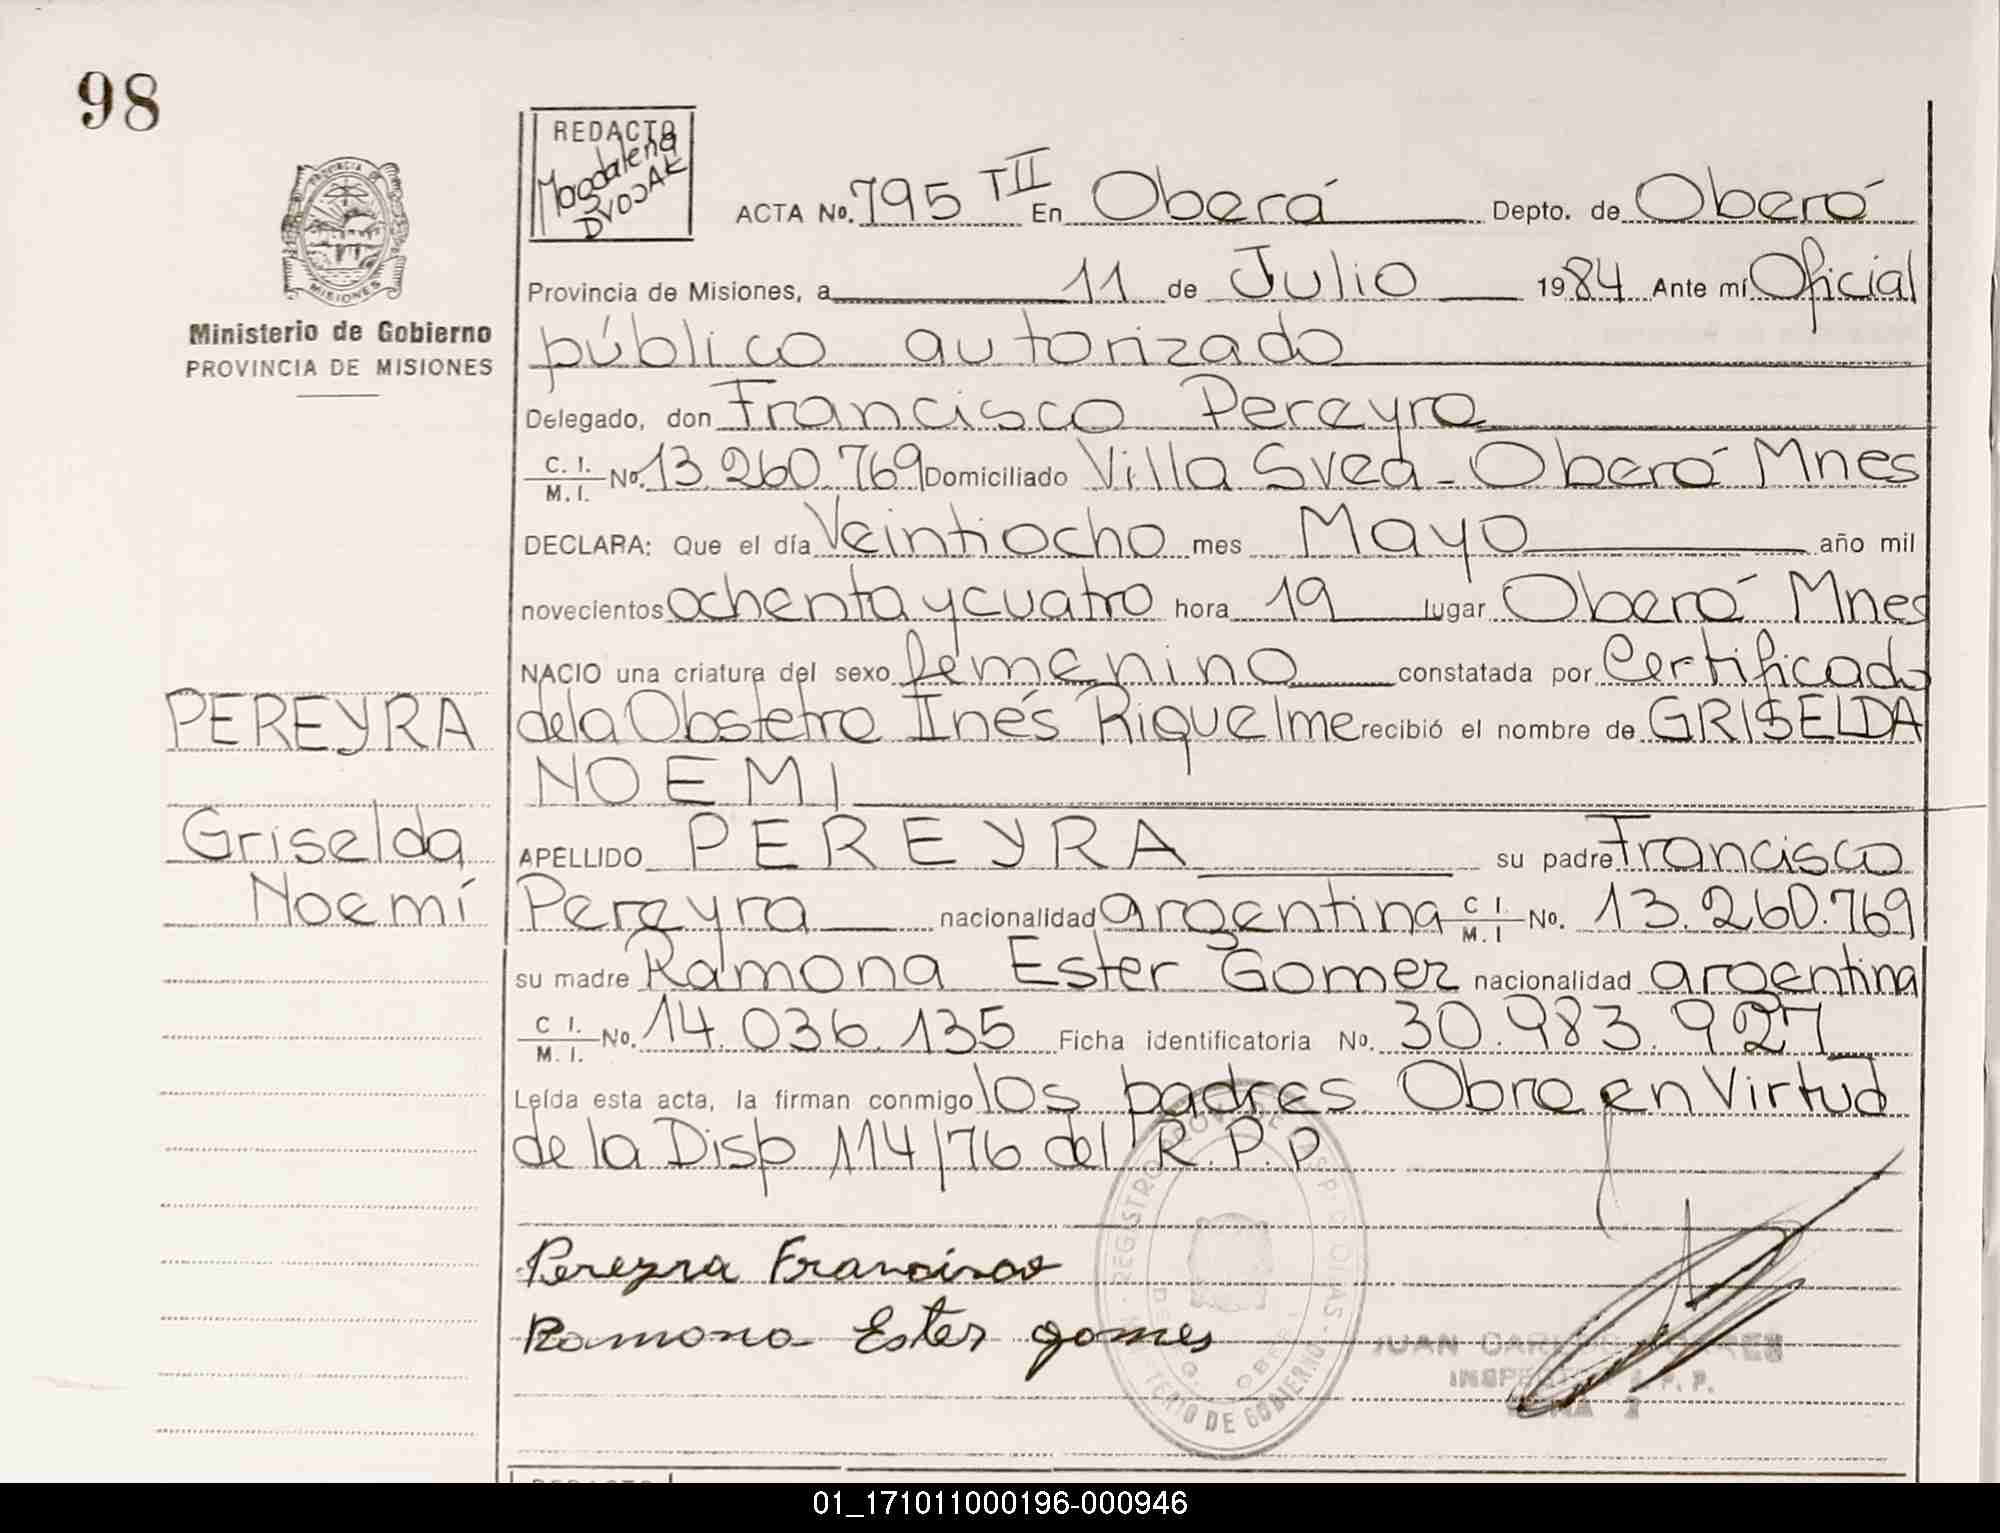 98
REDACTO
Magdalena
DVOJAK
PROVINCIA DE
MISIONES
Ministerio de Gobierno
PROVINCIA DE MISIONES
ACTA No. 795 TII En Oberá Depto. de Oberá
Provincia de Misiones, a 11 de Julio 1984 Ante mí Oficial
público autorizado
Delegado, don Francisco Pereyra
C. I. / M. I. No. 13.260.769 Domiciliado Villa Svea - Oberá Mnes
DECLARA: Que el día Veintiocho mes Mayo año mil
novecientos ochenta y cuatro hora 19 lugar Oberá Mnes
NACIO una criatura del sexo femenino constatada por Certificado
de la Obstetra Inés Riquelme recibió el nombre de GRISELDA
NOEMI
APELLIDO PEREYRA su padre Francisco
Pereyra nacionalidad argentina C I. / M. I No. 13.260.769
su madre Ramona Ester Gomez nacionalidad argentina
C I. / M. I. No. 14.036.135 Ficha identificatoria No. 30.983.927
Leída esta acta, la firman conmigo los padres Obro en Virtud
de la Disp 114/76 del R.P.P
PEREYRA
Griselda
Noemí
Pereyra Francisco
Ramona Ester gomes
REGISTRO
DE GOBIERNO
JUAN
REDACTO
01_171011000196-000946